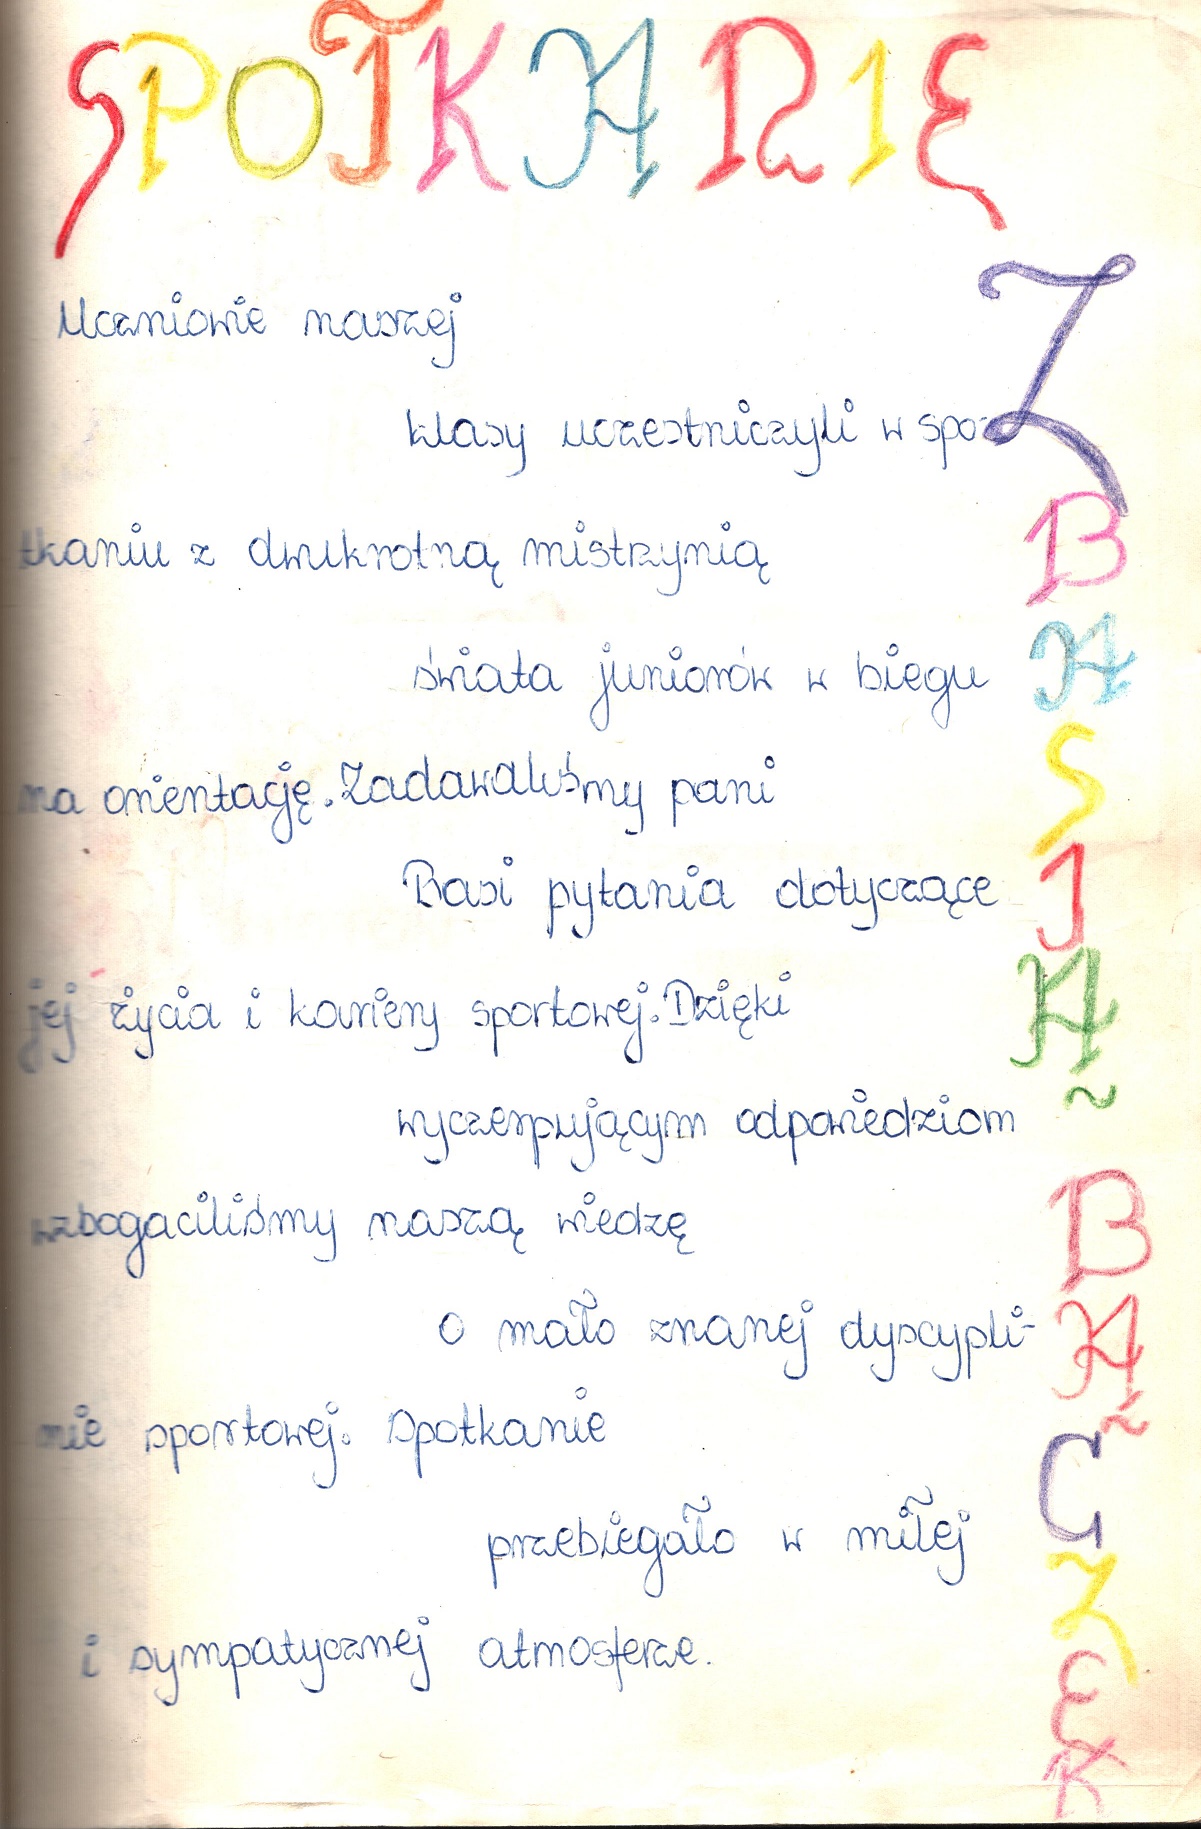 SPOTKANIE
Z BASIĄ BĄCZEK
Uczniowie naszej
klasy uczestniczyli w spo-
tkaniu z dwukrotną mistrzynią
świata juniorów w biegu
na orientację. Zadawaliśmy pani
Basi pytania dotyczące
jej życia i kariery sportowej. Dzięki
wyczerpującym odpowiedziom
wzbogaciliśmy naszą wiedzę
o mało znanej dyscypli-
nie sportowej. Spotkanie
przebiegało w miłej
i sympatycznej atmosferze.